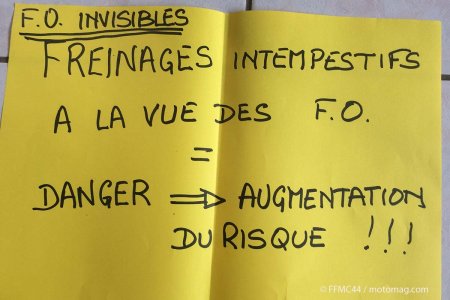 F.O. INVISIBLES
FREINAGES INTEMPESTIFS
A LA VUE DES F.O.
=
DANGER ⇒ AUGMENTATION
DU RISQUE !!!
© FFMC44 / motomag.com